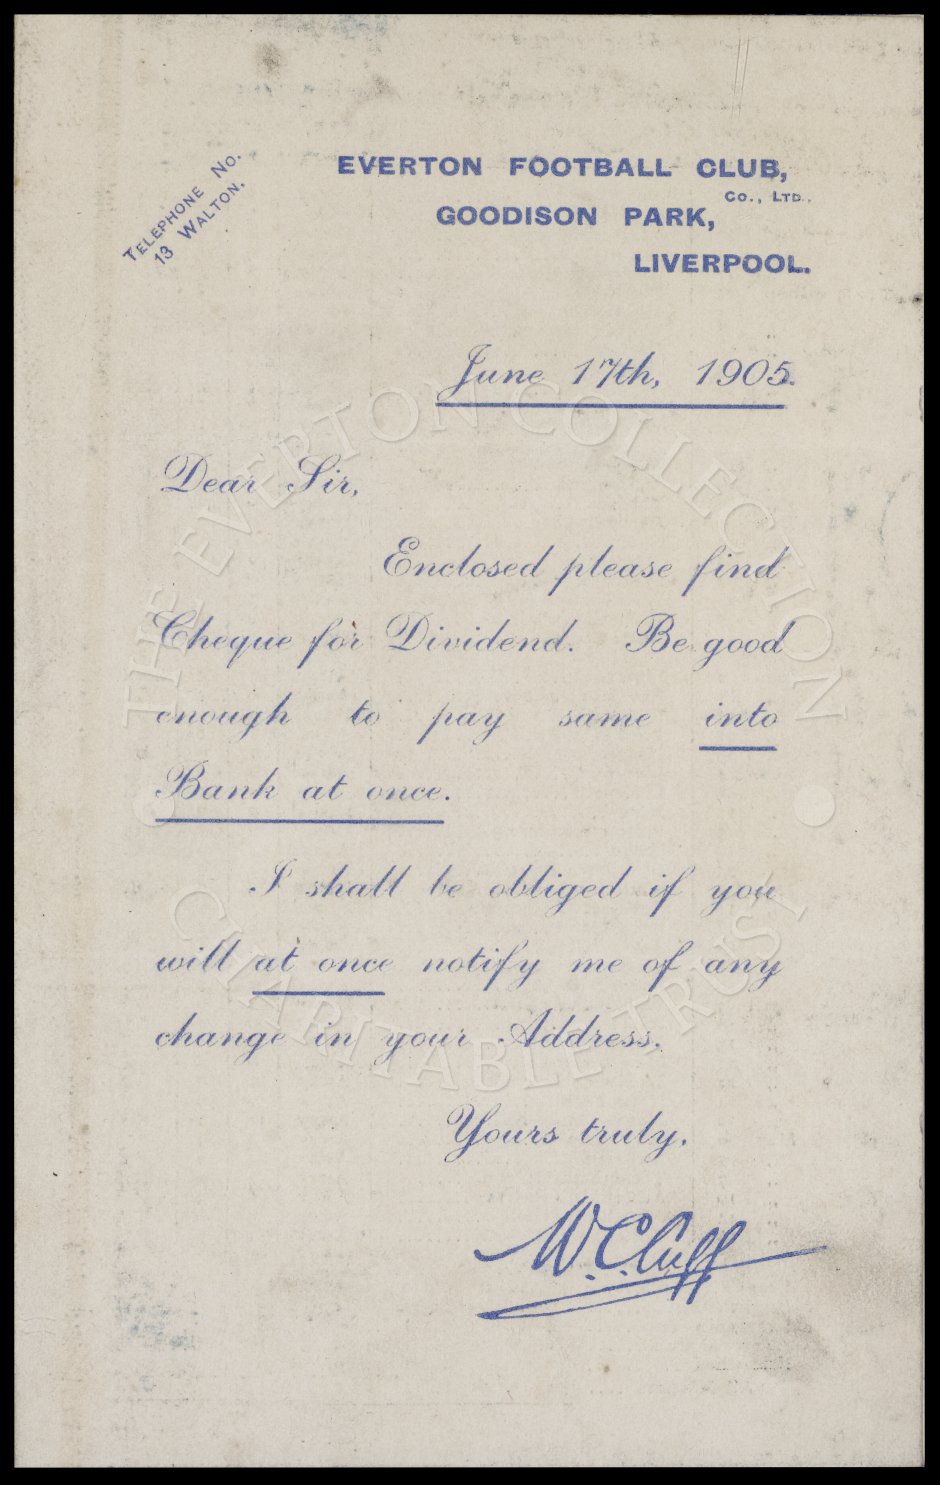 TELEPHONE NO.
13 WALTON.
EVERTON FOOTBALL CLUB,
CO., LTD.,
GOODISON PARK,
LIVERPOOL.
June 17th, 1905.
Dear Sir,
Enclosed please find
Cheque for Dividend. Be good
enough to pay same into
Bank at once.
I shall be obliged if you
will at once notify me of any
change in your Address.
Yours truly,
W.C.Cuff
THE EVERTON COLLECTION
CHARITABLE TRUST